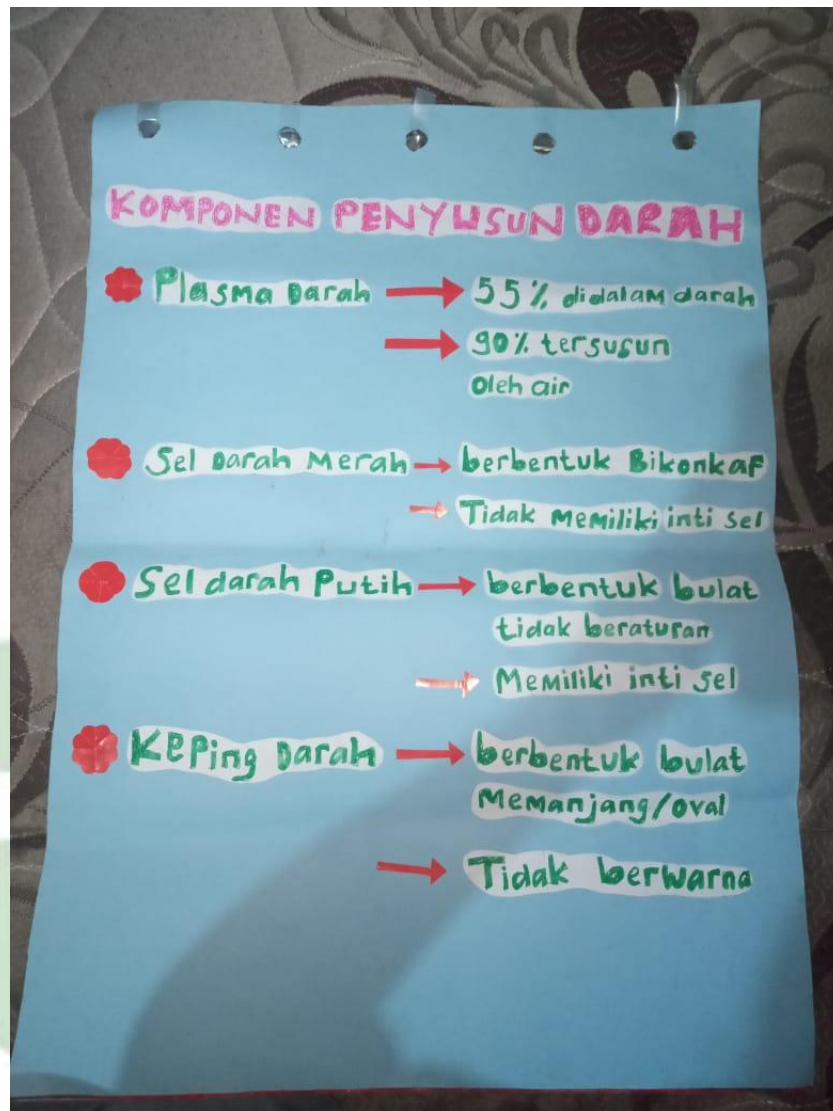 KOMPONEN PENYUSUN DARAH
Plasma Darah → 55% didalam darah
→ 90% tersusun
oleh air
Sel Darah Merah → berbentuk Bikonkaf
→ Tidak Memiliki inti sel
Sel darah Putih → berbentuk bulat
tidak beraturan
→ Memiliki inti sel
KEPing Darah → berbentuk bulat
Memanjang/oval
→ Tidak berwarna